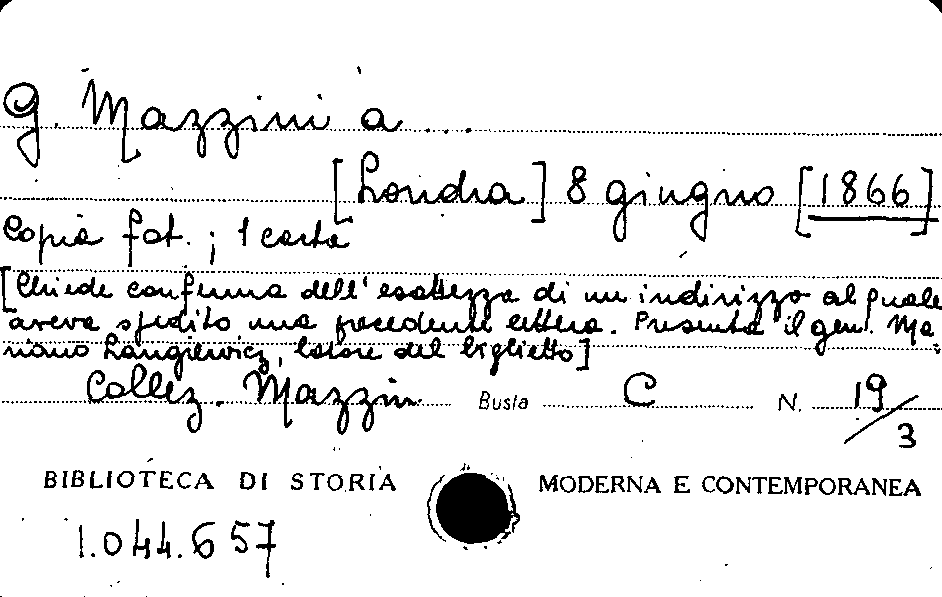 G. Mazzini a ...
[Londra] 8 giugno [1866]
Copia fot. ; 1 carta
[Chiede conferma dell'esattezza di un indirizzo al quale
aveva spedito una precedente lettera. Presenta il gen. Ma-
riano Langiewicz, latore del biglietto]
Collez. Mazzini Busta C N. 19/3
BIBLIOTECA DI STORIA MODERNA E CONTEMPORANEA
1.044.657